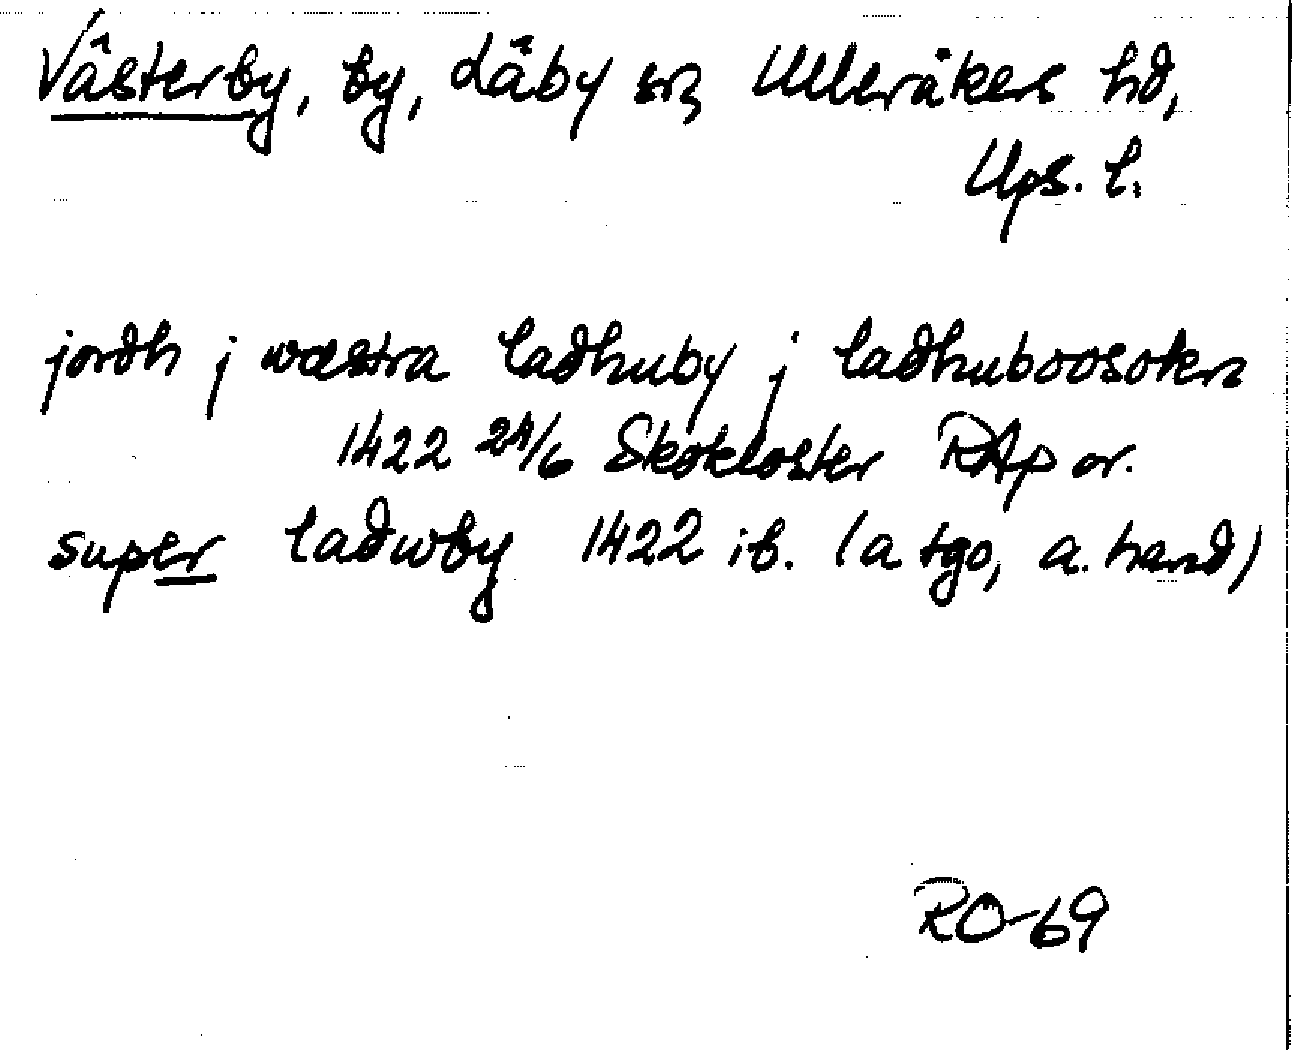 Västerby, by, Läby sn, Ulleråkers hd,
Ups. l.
jordh j wæstra ladhuby j ladhuboosokn
1422 24/6 Skokloster RAp or.
super ladwby 1422 ib. (a tgo, a. hand)
RO-69